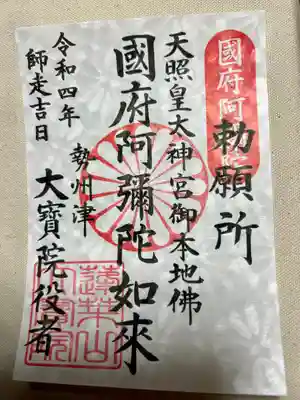 勅願所
天照皇大神宮御本地佛
國府阿彌陀如來
勢州津
大寶院役者
令和四年
師走吉日
國府阿
蓮華山